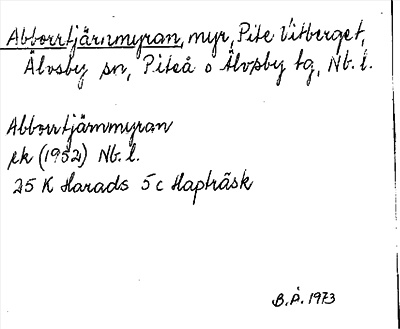 Abborrtjärnmyran, myr, Pite Vitberget,
Älvsby sn, Piteå o Älvsby tg, Nb. l.
Abborrtjärnmyran
ek (1952) Nb. l.
25 K Harads 5 c Hapträsk
B.P. 1973